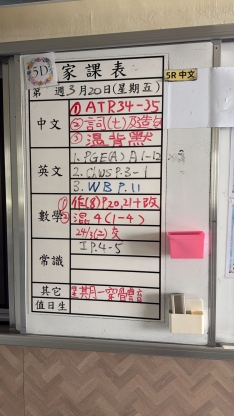 5D 家課表
5R 中文
第 週3月20日(星期五)
中文 ① ATR34-35
② 詞(七)及
③ 溫背默
英文 1. PGE(A) A1-12
2. GWS P.3-1
3. WB P.11
數學 ① 作(8)P20,21+改
② 溫4(1-4)
24/3(二)交
常識 1 P.4-5
其它 星期一穿體育
值日生